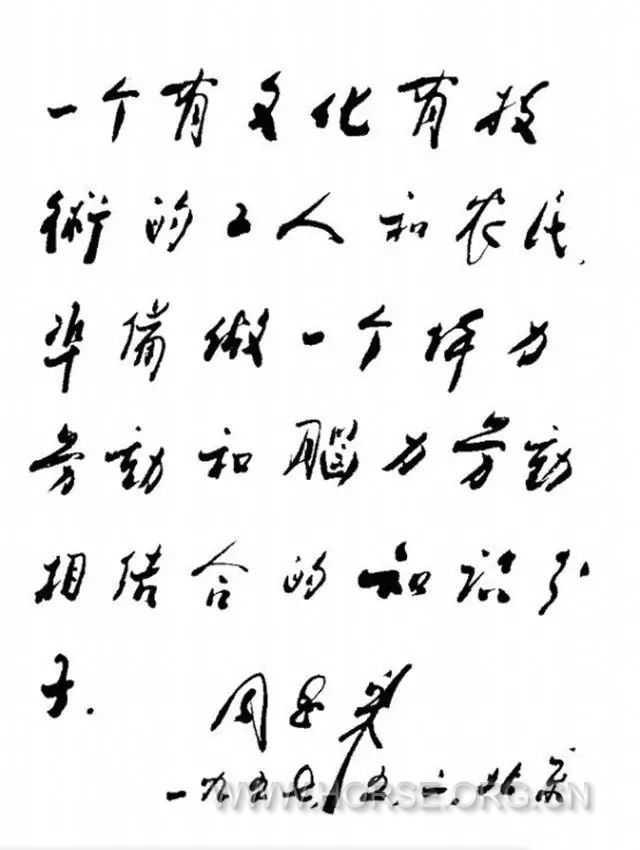 一个有文化有技
術的工人和农民,
準備做一个体力
劳动和腦力劳动
相结合的知识分
子.
周恩来
一九五七,五.二.北京
WWW.HORSE.ORG.CN